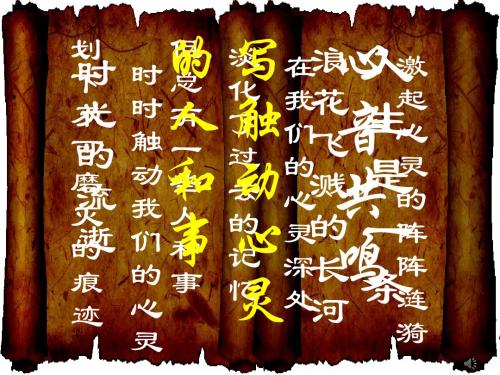 激起心灵的阵阵涟漪
人生是一条
心音共鸣
浪花飞溅的长河
在我们的心灵深处
写触动心灵
淡化了过去的记忆
的人和事
但总有一些人和事
时时触动我们的心灵
时光的流逝
划磨灭的痕迹